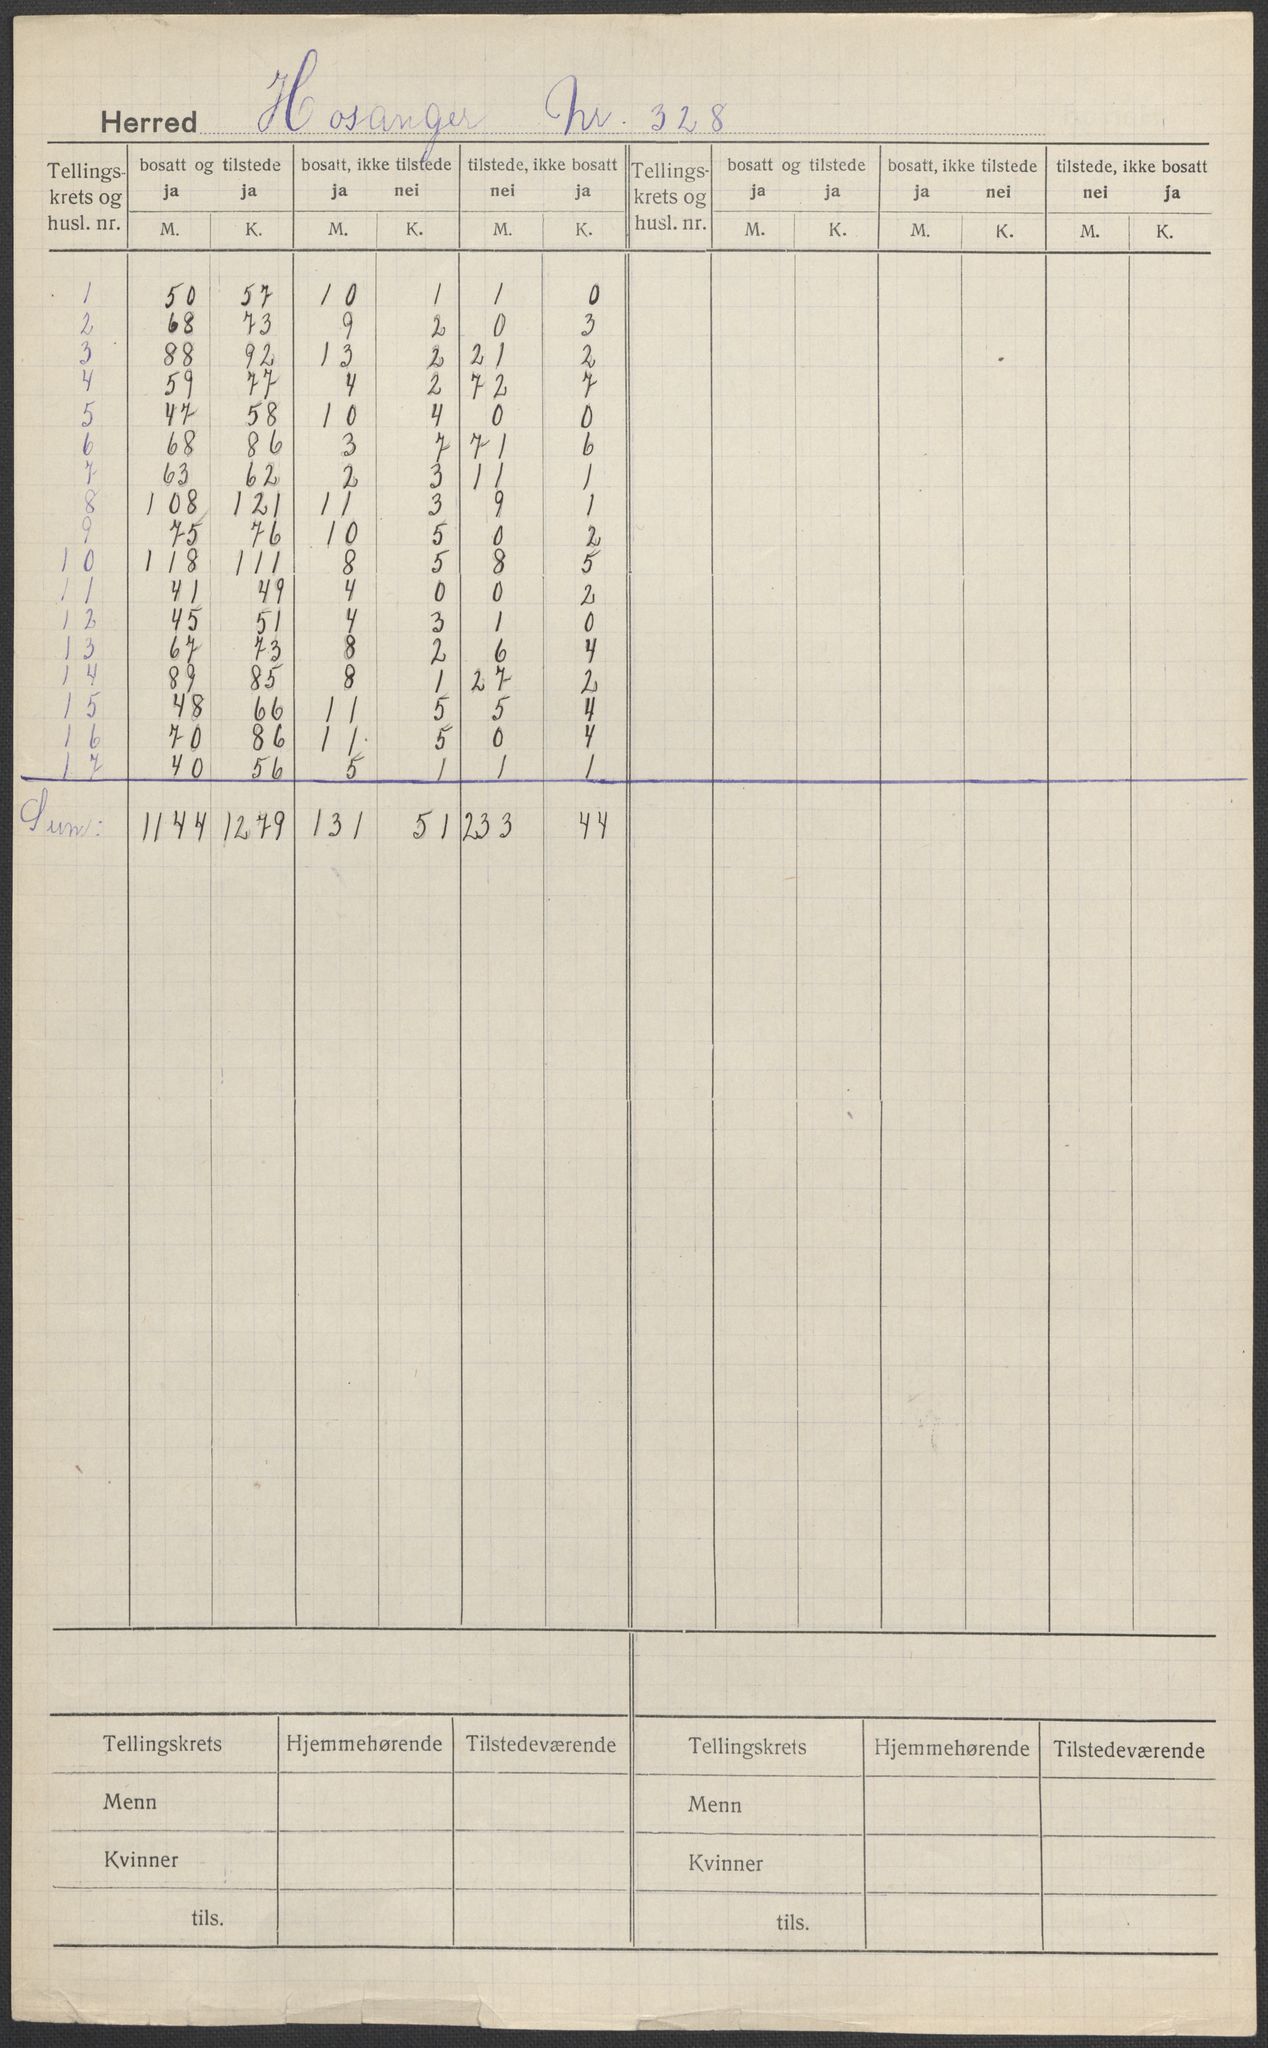 Herred Hosanger Nr. 328
Tellings-krets og husl. nr. | bosatt og tilstede ja ja | bosatt, ikke tilstede ja nei | tilstede, ikke bosatt nei ja | Tellings-krets og husl. nr. | bosatt og tilstede ja ja | bosatt, ikke tilstede ja nei | tilstede, ikke bosatt nei ja
M. K. M. K. M. K. M. K. M. K. M. K.
1 50 57 10 1 1 0
2 68 73 9 2 0 3
3 88 92 13 2 21 2
4 59 77 4 2 72 7
5 47 58 10 4 0 0
6 68 86 3 7 71 6
7 63 62 2 3 11 1
8 108 121 11 3 9 1
9 75 76 10 5 0 2
10 118 111 8 5 8 5
11 41 49 4 0 0 2
12 45 51 4 3 1 0
13 67 73 8 2 6 4
14 89 85 8 1 27 2
15 48 66 11 5 5 4
16 70 86 11 5 0 4
17 40 56 5 1 1 1
Sum: 1144 1279 131 51 233 44
Tellingskrets Hjemmehørende Tilstedeværende Tellingskrets Hjemmehørende Tilstedeværende
Menn Menn
Kvinner Kvinner
tils. tils.